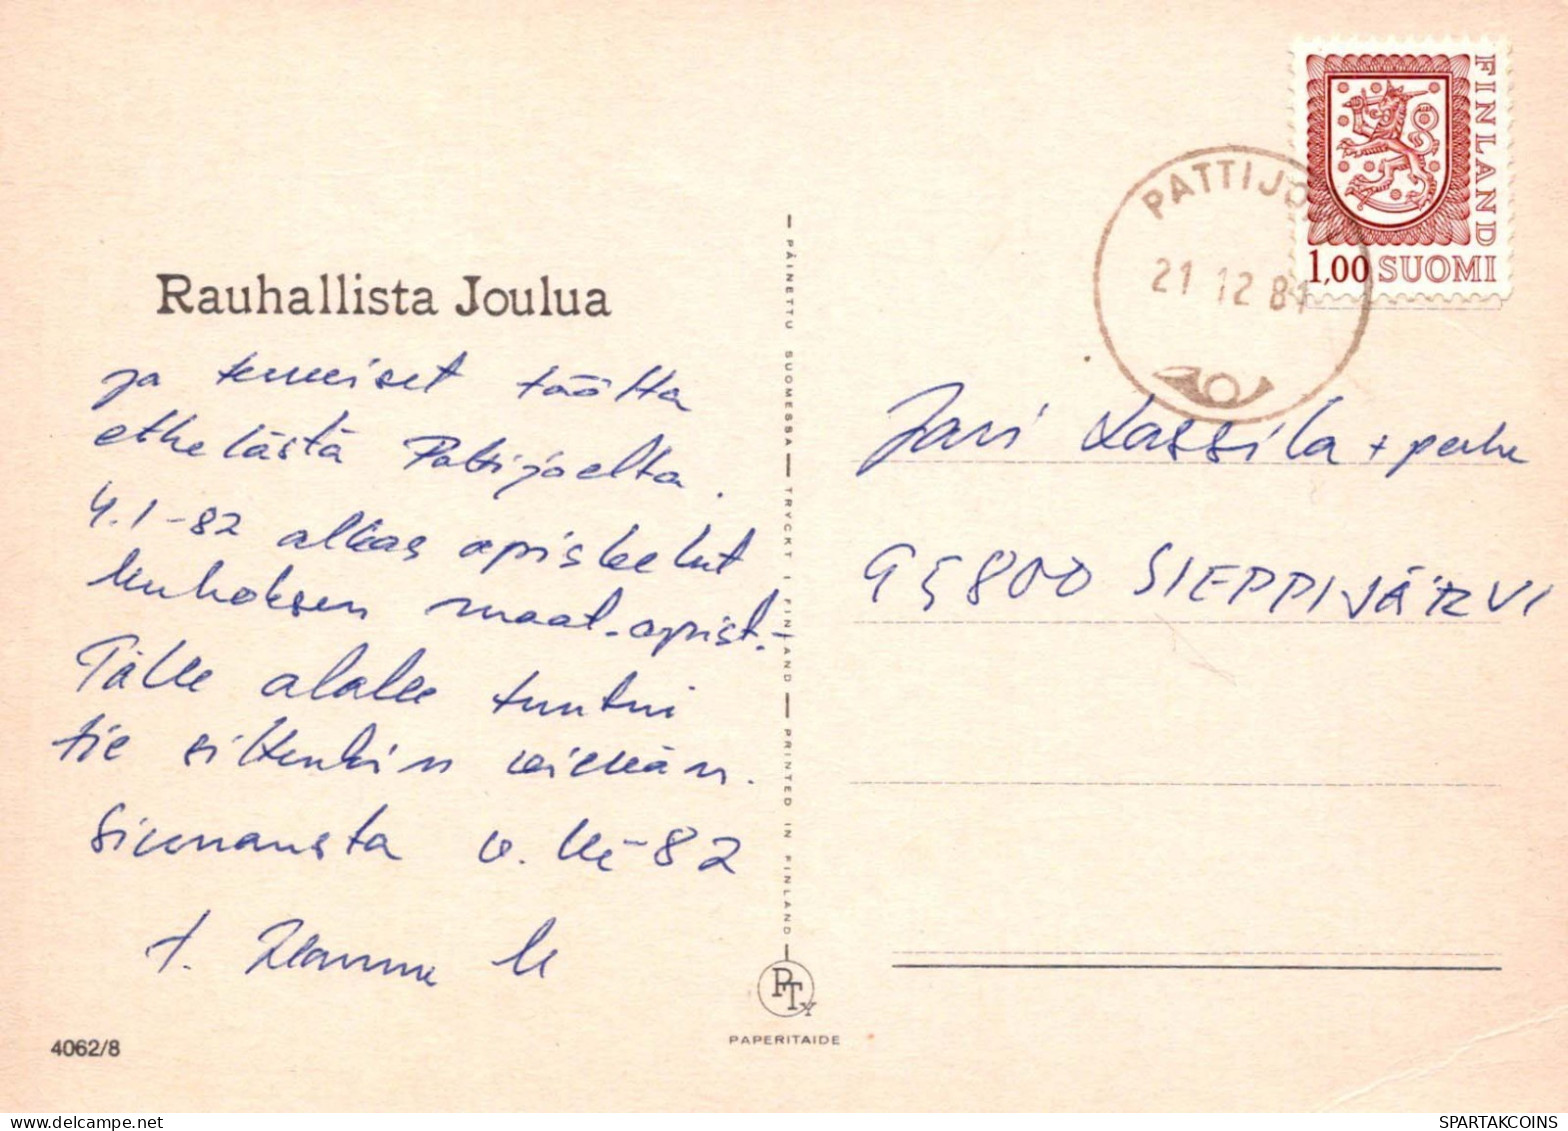 FINLAND
1,00 SUOMI
PATTIJO
21 12 81
Rauhallista Joulua
ja terveiset täältä
etelästä Pattijoelta.
4.1-82 alkas opiskelut
maat.opist.
Tälle alalle tuntui
tie sittenkin vievän.
Siunausta v. -82
t. Hannu
Jari Lassila + perhe
95800 SIEPPIJÄRVI
PAINETTU SUOMESSA — TRYCKT I FINLAND — PRINTED IN FINLAND
PTY
PAPERITAIDE
4062/8
SPARTAKCOINS